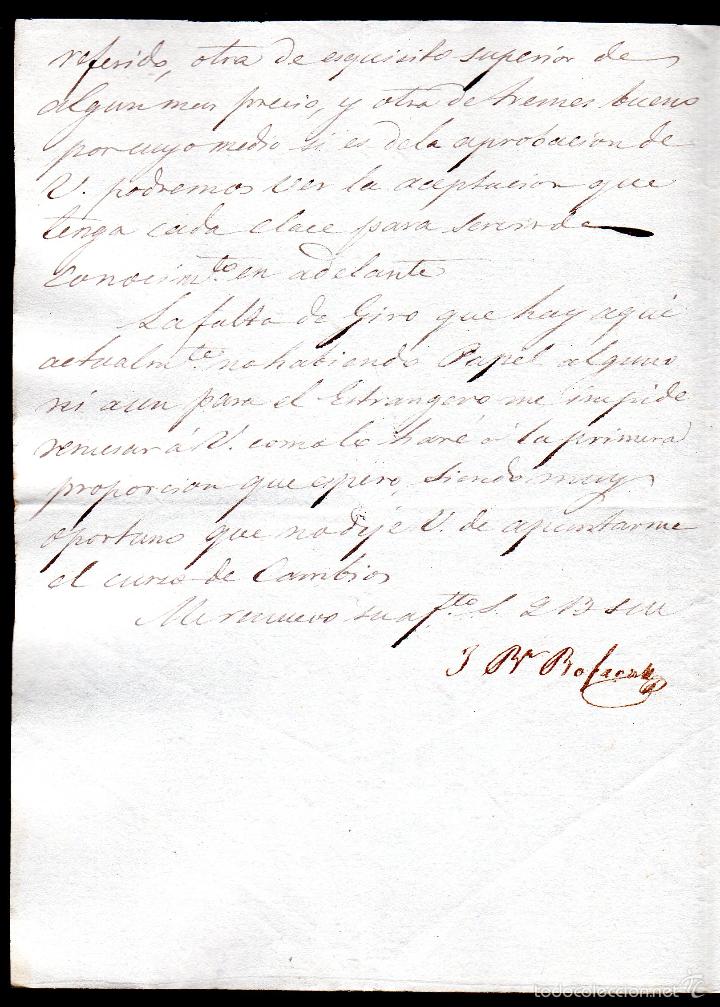 referido, otra de esquisito superior de
algun mas precio, y otra de tremes bueno
por cuyo medio si es de la aprobacion de
V. podremos ver la aceptacion que
tenga cada clace para servir de
Conocim.to en adelante
La falta de Giro que hay aqui
actualm.te no habiendo Papel alguno
ni aun para el Estrangero me impide
remesar á V. como lo haré á la primera
proporcion que espero, siendo muy
oportuno que no deje V. de apuntarme
el curso de Cambios
Me renuevo su af.to S. Q B S M
J Br
todocoleccion.net